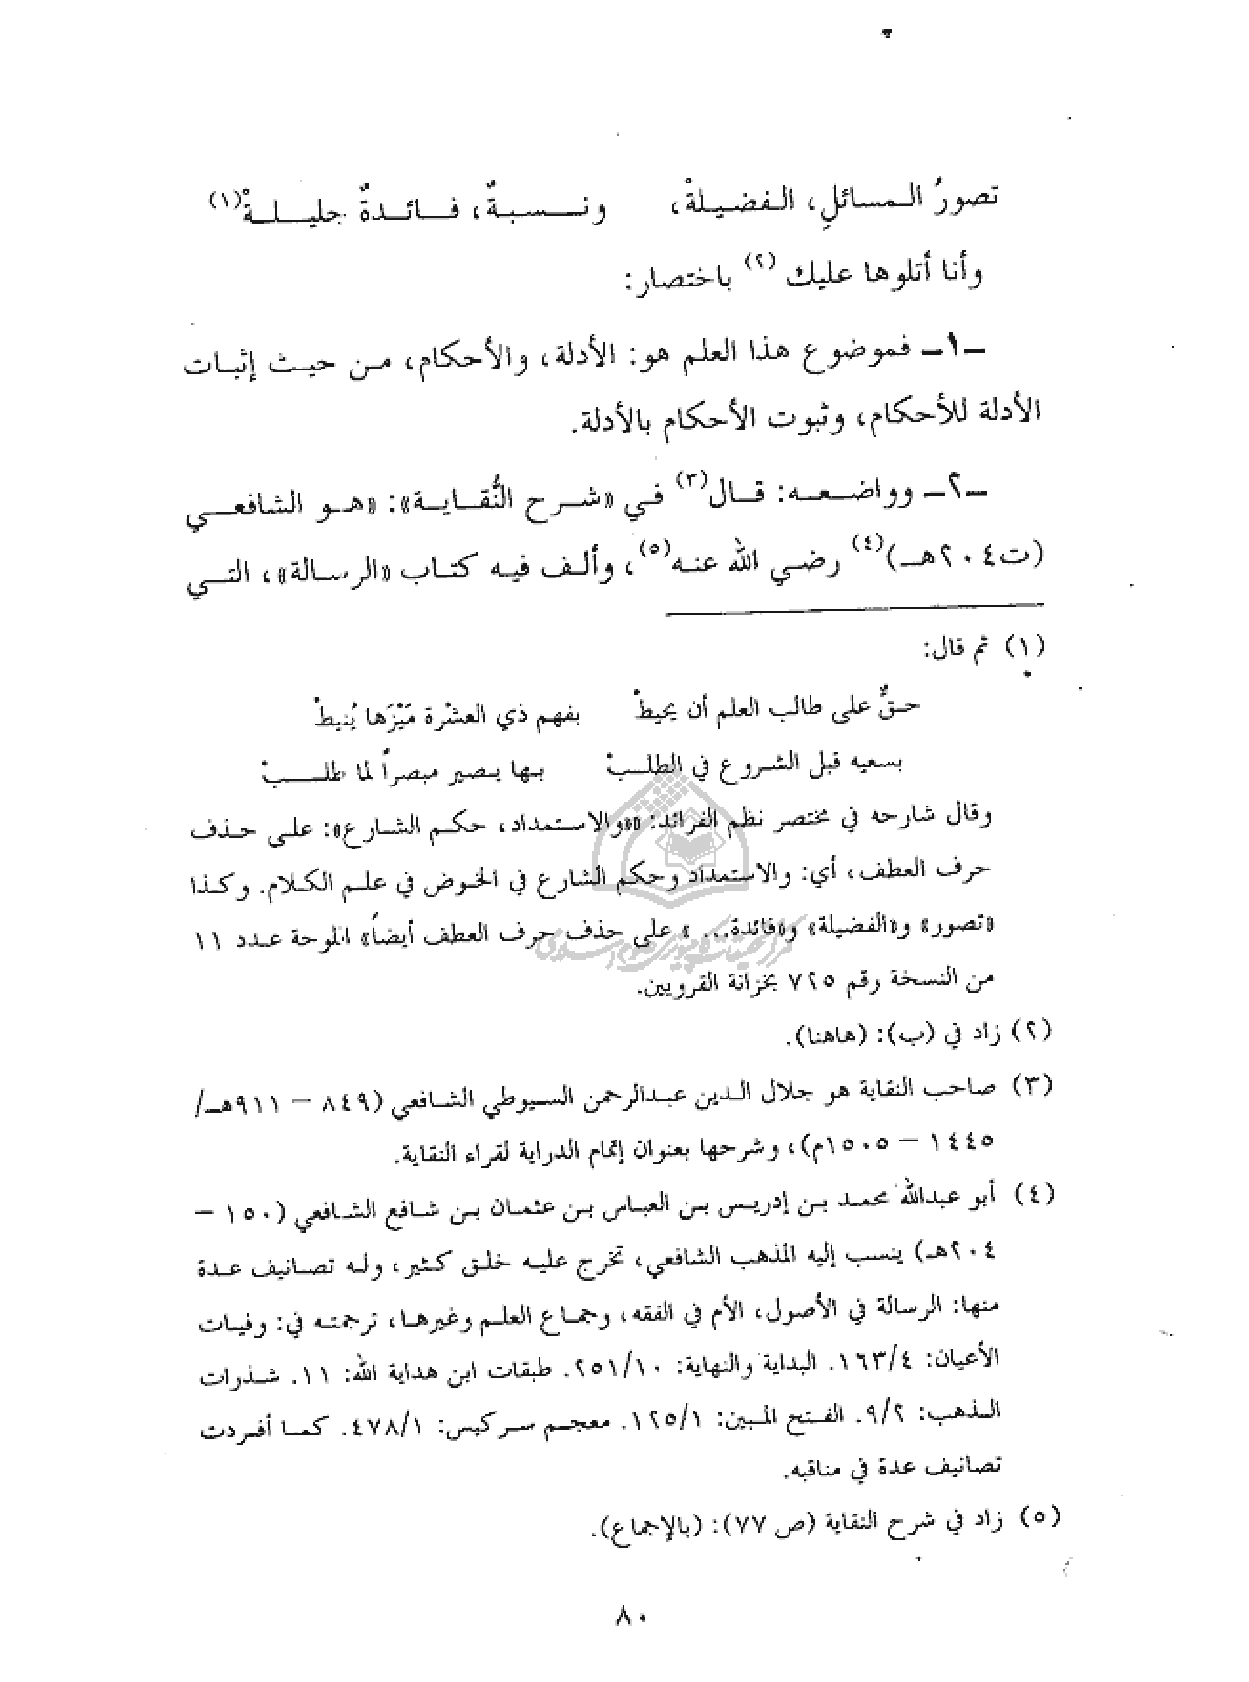 تصورُ المسائلِ، الفضيلةْ، ونسبةٌ، فائدةٌ جليلةْ(١)
وأنا أتلوها عليك (٢) باختصار:
-١- فموضوع هذا العلم هو: الأدلة، والأحكام، من حيث إثبات
الأدلة للأحكام، وثبوت الأحكام بالأدلة.
-٢- وواضعه: قال(٣) في «شرح النُّقاية»: «هو الشافعي
(ت٢٠٤هـ)(٤) رضي الله عنه(٥)، وألف فيه كتاب «الرسالة»، التي
(١) ثم قال:
حقٌّ على طالب العلم أن يحيطْ بفهم ذي العشْرة مَيْزَها يُنيطْ
بسعيه قبل الشروع في الطلبْ بها بصير مبصراً لما طلبْ
وقال شارحه في مختصر نظم الفرائد: «»والاستمداد، حكم الشارع»: على حذف
حرف العطف، أي: والاستمداد وحكم الشارع في الخوض في علم الكلام. وكذا
«تصور» و«الفضيلة» و«فائدة... » على حذف حرف العطف أيضاً» اللوحة عدد ١١
من النسخة رقم ٧٢٥ بخزانة القرويين.
(٢) زاد في (ب): (هاهنا).
(٣) صاحب النقاية هو جلال الدين عبدالرحمن السيوطي الشافعي (٨٤٩ – ٩١١هـ/
١٤٤٥ – ١٥٠٥م)، وشرحها بعنوان إتمام الدراية لقراء النقاية.
(٤) أبو عبدالله محمد بن إدريس بن العباس بن عثمان بن شافع الشافعي (١٥٠ –
٢٠٤هـ) ينسب إليه المذهب الشافعي، تخرج عليه خلق كثير، وله تصانيف عدة
منها: الرسالة في الأصول، الأم في الفقه، وجماع العلم وغيرها، ترجمته في: وفيات
الأعيان: ١٦٣/٤. البداية والنهاية: ٢٥١/١٠. طبقات ابن هداية الله: ١١. شذرات
الذهب: ٩/٢. الفتح المبين: ١٢٥/١. معجم سركيس: ٤٧٨/١. كما أفردت
تصانيف عدة في مناقبه.
(٥) زاد في شرح النقاية (ص ٧٧): (بالإجماع).
٨٠